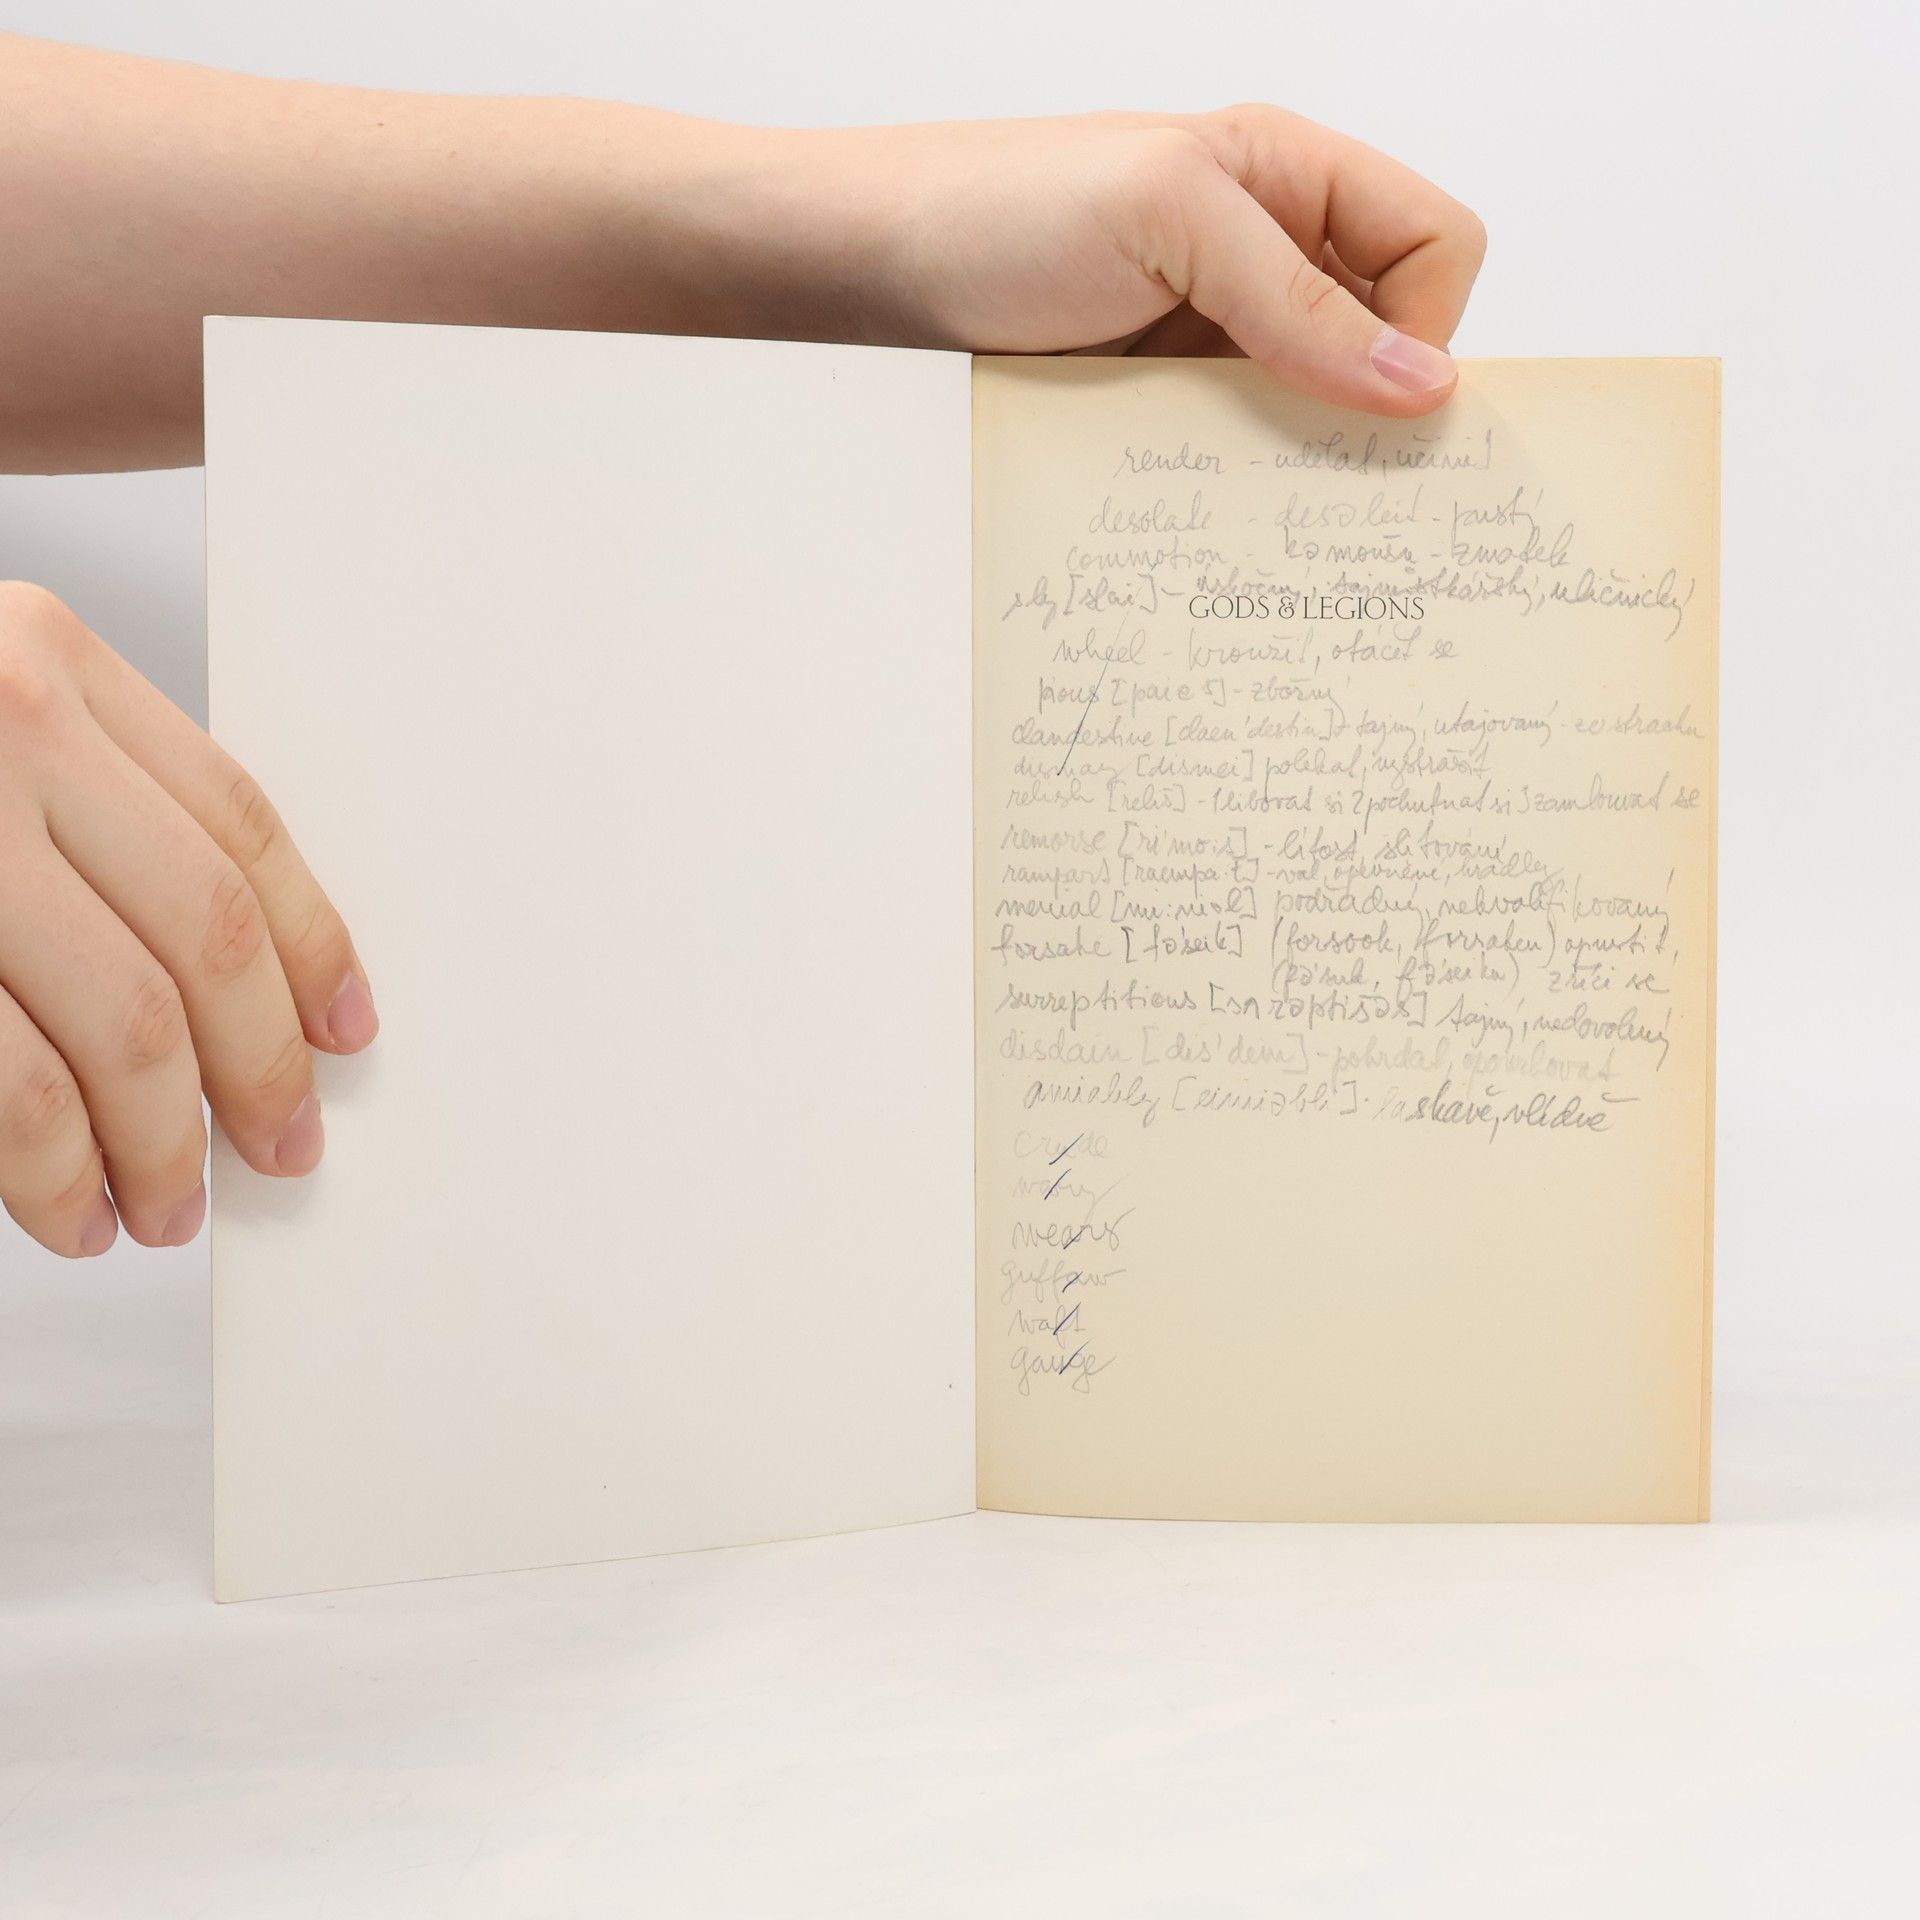 render - udělat, učinit
desolate - desəleit - pustý
commotion - kəmoušn - zmatek
sly [slai] - úskočný, tajnůstkářský, uličnický
GODS & LEGIONS
wheel - kroužit, otáčet se
pious [paies] - zbožný
clandestine [daen'destin] - tajný, utajovaný - ze strachu
dismay [dismei] polekat, vystrašit
relish [reliš] - 1 libovat si 2 pochutnat si 3 zamlouvat se
remorse [ri'mo:s] - lítost, slitování
rampart [raempa:t] - val, opevnění, hradby
menial [mi:niəl] podřadný, nekvalifikovaný
forsake [fə'seik] (forsook, forsaken) opustit,
(fə'suk, fə'seikn) zříci se
surreptitious [sʌrəptišəs] tajný, nedovolený
disdain [dis'dein] - pohrdat, opovrhovat
amiably [eimiəbli] - laskavě, vlídně
crude
wary
weary
guffaw
waft
gauge